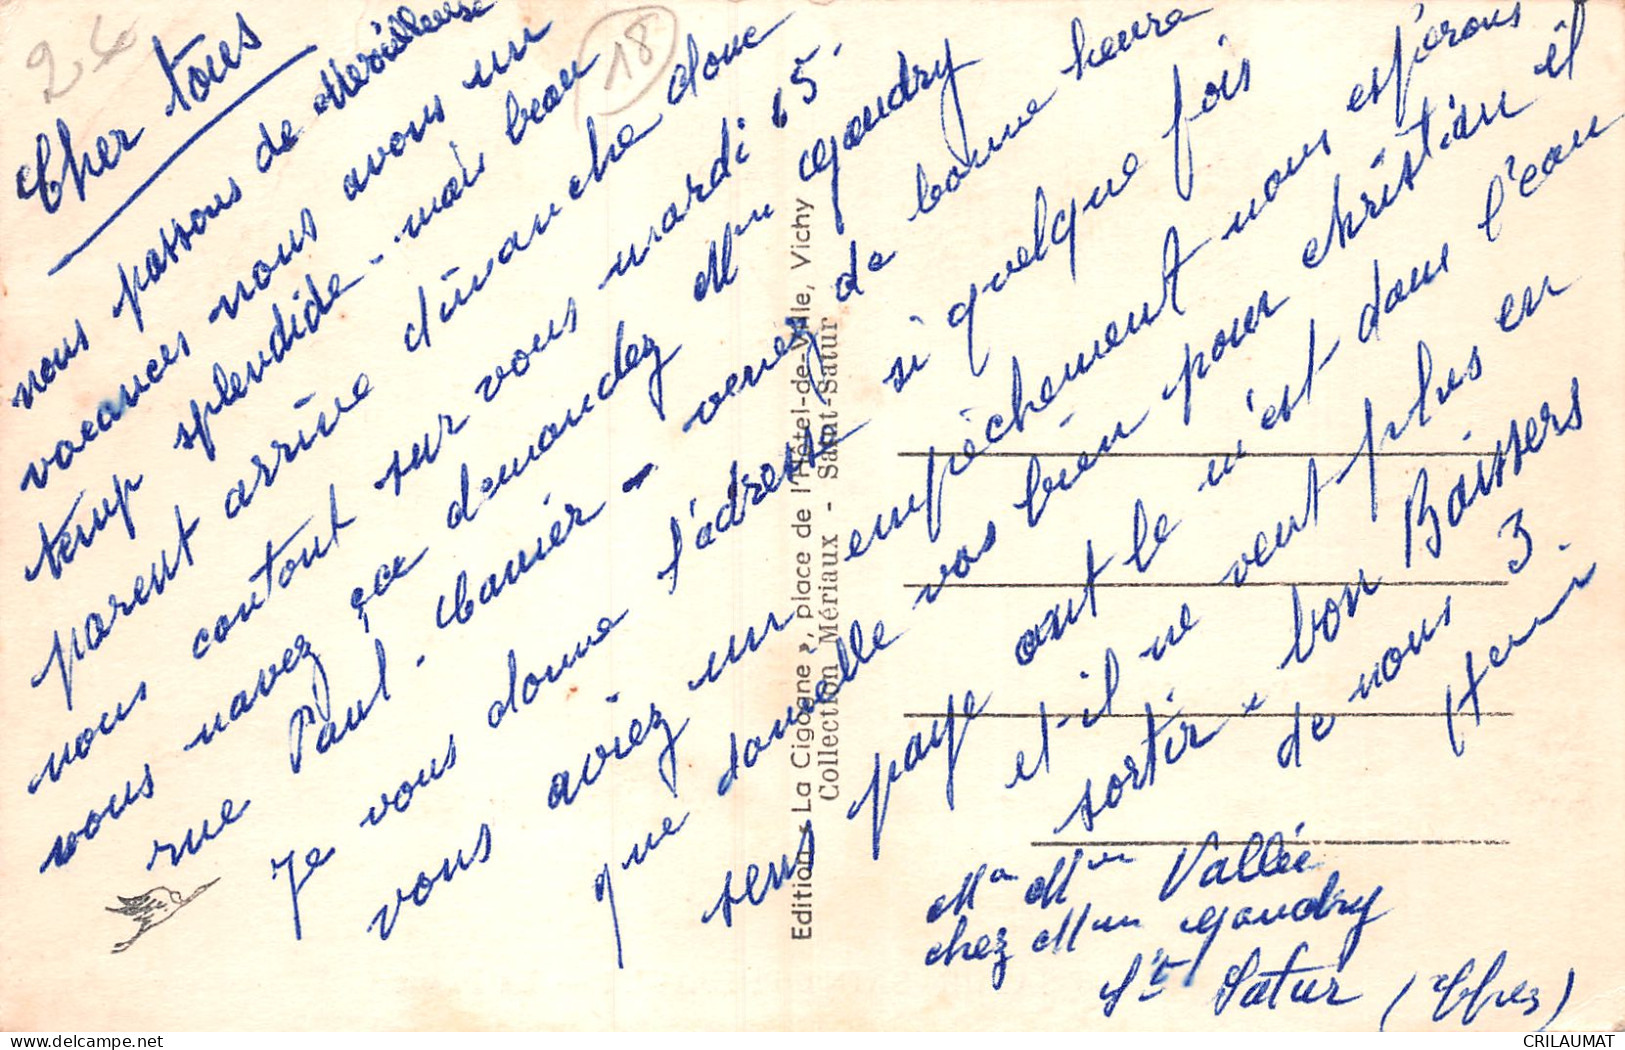 24
18
Cher tous
nous passons de Merveilleuse
vacances nous avons un
temp splendide - mais beau
parent arrive dimanche donc
nous contont sur vous mardi 15.
vous navez qa demandez Mme Gaudry
rue Paul - venez de bonne heure
Je vous donne l'adresse si quelque fois
vous aviez un empêchement nous espérons
que donelle vas bien pour christian il
sens paye ont le n'est dans l'eau
et il ne veut plus en
sortir - bon Baissers
de nous 3.
Henri
Mr Mme Vallée
chez Mme Gaudry
St Satur (Cher)
Edition « La Cigogne », place de l'Hôtel-de-Ville, Vichy
Collection Mériaux - Saint-Satur
CRILAUMAT